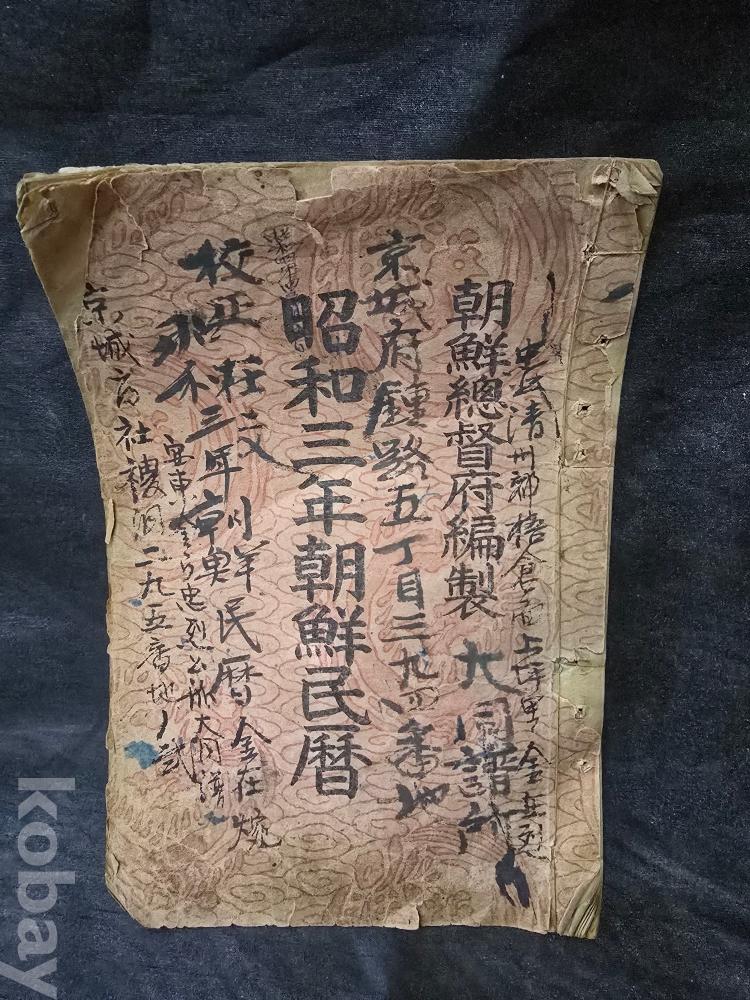 忠北清州郡梧倉面上坪里 金在烈
朝鮮總督府編製 大同譜所
京城府鍾路五丁目三九四番地
昭和三年朝鮮民曆
校正莊
三年朝鮮民曆 金在
安東金氏忠烈公派大同譜
京城府社稷洞二九五番地ノ貳
kobay